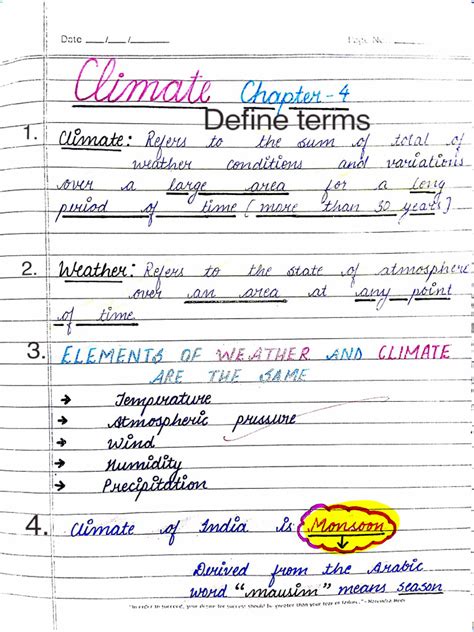 Date __/__/__ Page No. ____
Climate Chapter-4
Define terms
1. Climate: Refers to the sum of total of
weather conditions and variations
over a large area for a long
period of time (more than 30 years]
2. Weather: Refers to the state of atmosphere
over an area at any point
of time
3. ELEMENTS OF WEATHER AND CLIMATE
ARE THE SAME
→ Temperature
→ Atmospheric pressure
→ Wind
→ Humidity
→ Precipitation
4. Climate of India is Monsoon
↓
Derived from the Arabic
word "mausim" means season
"In order to succeed, your desire for success should be greater than your fear of failure."